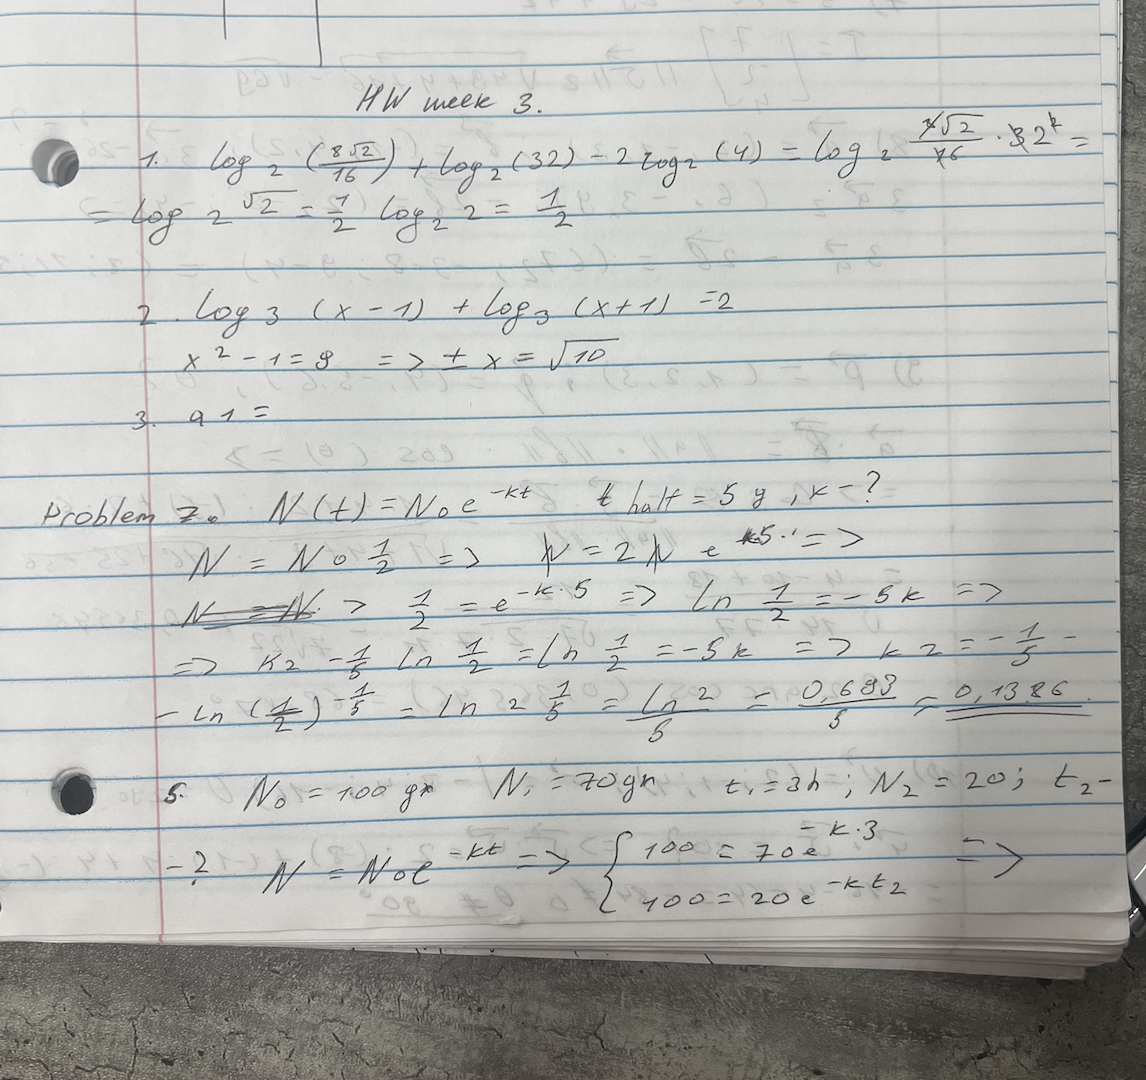 HW week 3.
1. log₂ (8√2/16) + log₂ (32) - 2 log₂ (4) = log₂ √2/16 · 32 =
= log 2 √2 = 1/2 log₂ 2 = 1/2
2. log₃ (x - 1) + log₃ (x + 1) = 2
x² - 1 = 9 => ± x = √10
3. a 1 =
Problem 7. N(t) = N₀ e^(-kt) t half = 5 y, k - ?
N = N₀ 1/2 => N = 2 N e^(k5) =>
N = N > 1/2 = e^(-k·5) => ln 1/2 = -5k =>
=> k2 - 1/5 ln 1/2 = ln 1/2 = -5k => k2 = -1/5 -
- ln (1/2)^(-1/5) = ln 2^(1/5) = ln 2/5 = 0,693/5 = 0,1386
5. N₀ = 100 gr N₁ = 70 gr t₁ = 3h ; N₂ = 20 ; t₂ -
- ? N = N₀e^(-kt) => { 100 = 70 e^(-k·3) =>
100 = 20 e^(-kt₂)